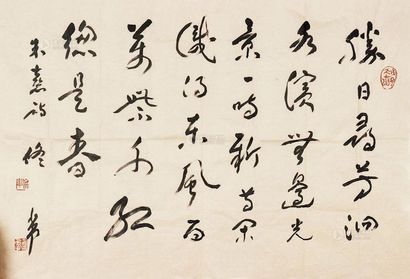 勝日尋芳泗
水濱無邊光
景一時新等閑
識得東風面
萬紫千紅
總是春
朱熹詩